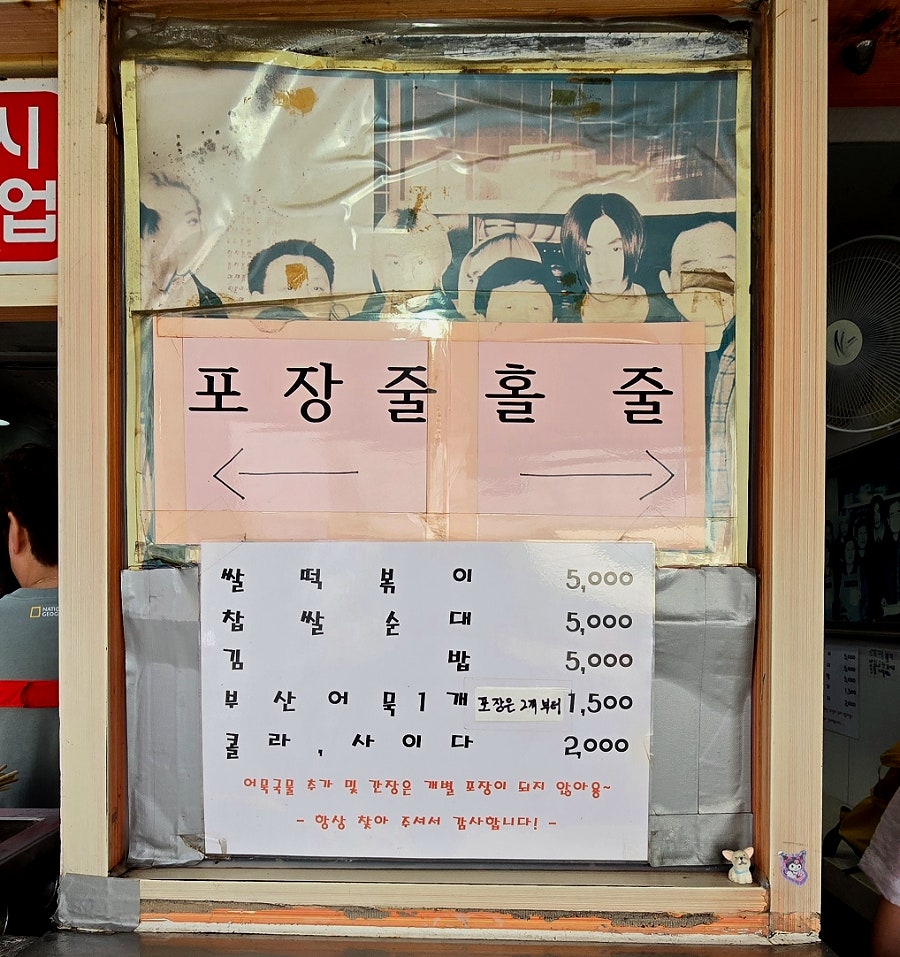 시
업
포장줄 홀 줄
쌀떡볶이 5,000
찹쌀순대 5,000
김밥 5,000
부산어묵1개 포장은 2개부터 1,500
콜라, 사이다 2,000
어묵국물 추가 및 간장은 개별 포장이 되지 않아용~
- 항상 찾아 주셔서 감사합니다! -
NATIONAL
GEOG